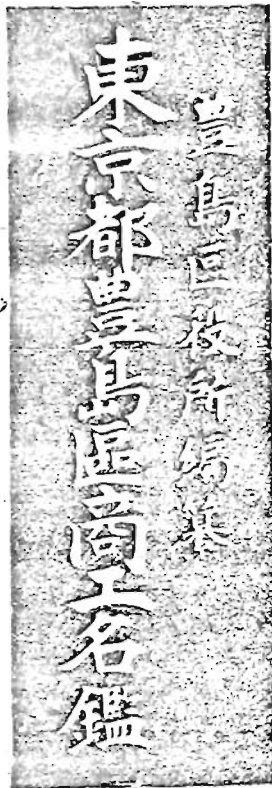 豊島區役所編纂
東京都豊島區商工名鑑